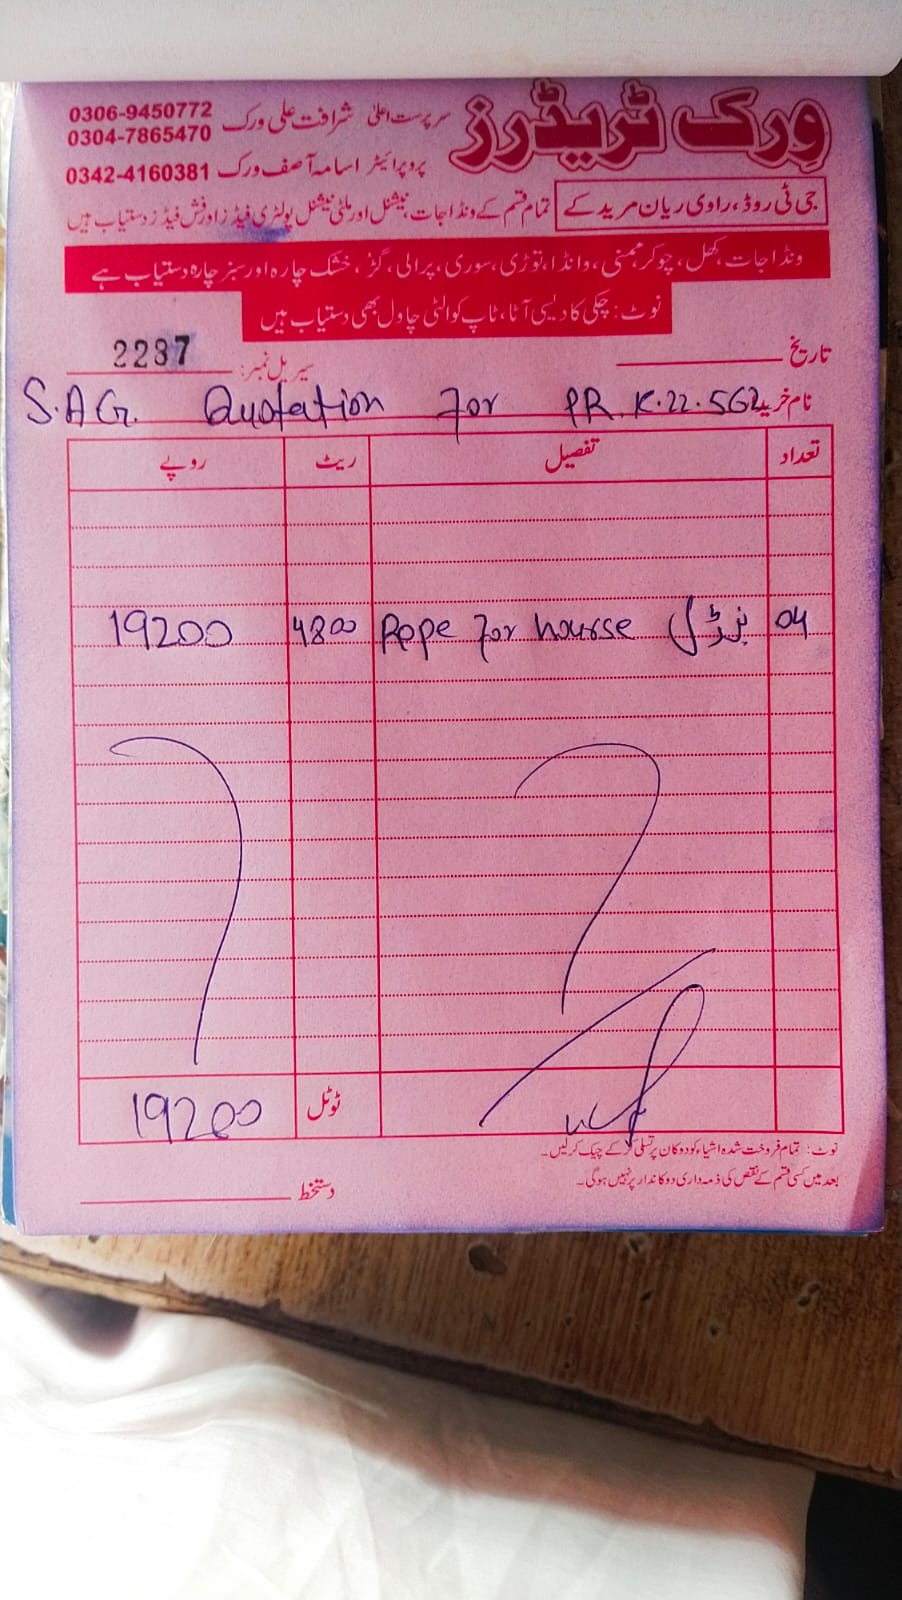 ورک ٹریڈرز
سرپرست اعلیٰ شرافت علی ورک
0306-9450772
0304-7865470
پروپرائیٹر اسامہ آصف ورک 0342-4160381
جی ٹی روڈ، راوی ریان مرید کے
تمام قسم کے ونڈا جات، نیشنل اور ملٹی نیشنل پولٹری فیڈز اور فش فیڈز دستیاب ہیں
ونڈا جات، کھل، چوکر، ممنی، وانڈا، توڑی، سوری، پرالی، گڑ، خشک چارہ اور سبز چارہ دستیاب ہے
نوٹ: چکی کا دیسی آٹا، ٹاپ کوالٹی چاول بھی دستیاب ہیں
تاریخ
سیریل نمبر: 2237
نام خریدار S.A.G. Quotation For PR. K.22.562
تعداد تفصیل ریٹ روپے
04 بنڈل Rope For hourse 4800 19200
ٹوٹل 19200
نوٹ: تمام فروخت شدہ اشیاء کو دوکان پر تسلی کر کے چیک کر لیں۔
بعد میں کسی قسم کے نقص کی ذمہ داری دوکاندار پر نہیں ہوگی۔
دستخط